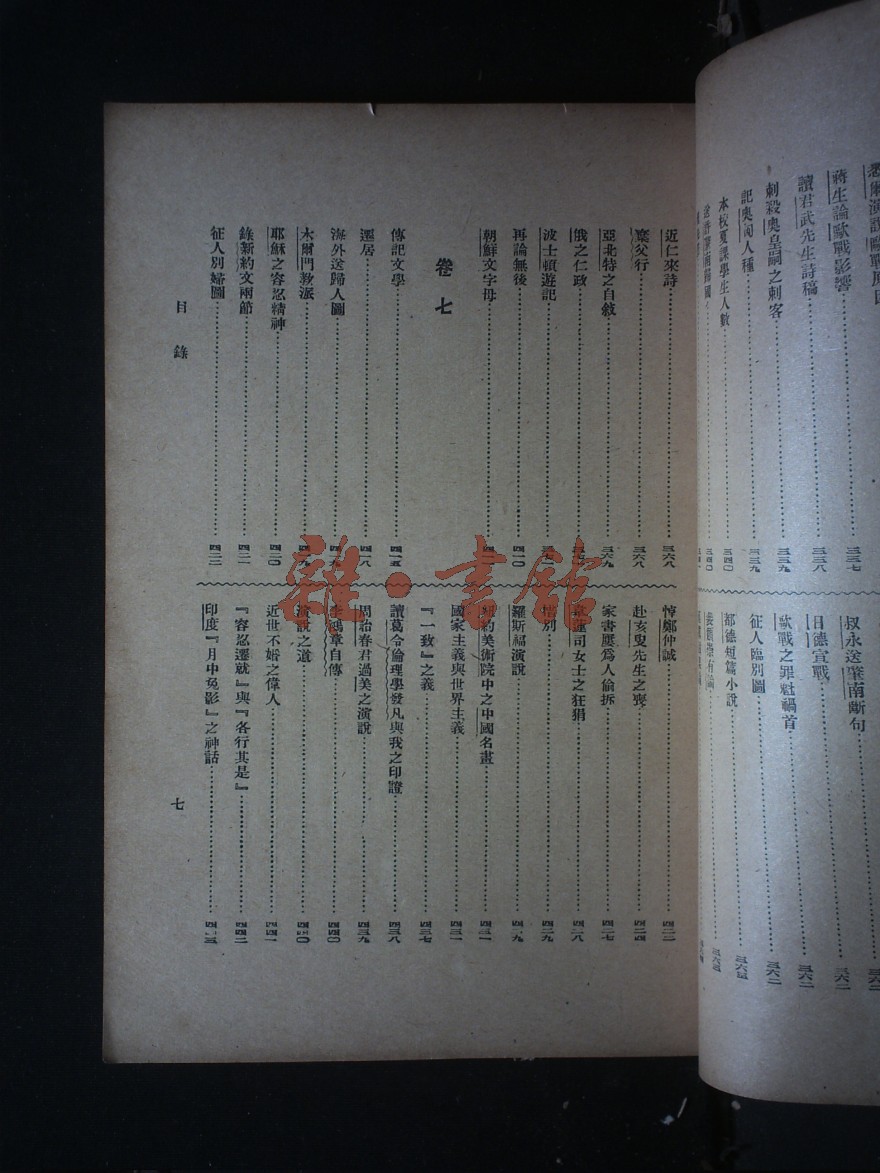 悉爾演說歐戰原因
蔣生論歐戰影響 三三七
讀君武先生詩稿 三三八
刺殺奧皇嗣之刺客 三三九
記奧匈人種 三三九
本校夏課學生人數 三四〇
送許肇南歸國 三四〇
叔永送肇南斷句 三六二
日德宣戰 三六二
歐戰之罪魁禍首 三六二
征人臨別圖 三六二
都德短篇小說 三六三
近仁來詩 三六八
棄父行 三六八
亞北特之自敘 三六九
俄之仁政
波士頓遊記
再論無後 四一〇
朝鮮文字母
卷七
傳記文學 四一五
遷居 四一八
海外送歸人圖
木爾門教派
耶穌之容忍精神 四二〇
錄新約文兩節 四二一
征人別婦圖 四二二
悼鄭仲誠 四二三
赴亥叟先生之喪 四二四
家書應爲人偷拆 四二七
韋蓮司女士之狂狷 四二八
惜別 四二九
羅斯福演說 四二九
紐約美術院中之中國名畫 四三一
國家主義與世界主義 四三一
『一致』之義 四三七
讀葛令倫理學發凡與我之印證 四三八
周詒春君過美之演說 四三九
李鴻章自傳 四四〇
演說之道 四四〇
近世不婚之偉人 四四一
『容忍遷就』與『各行其是』 四四二
印度『月中兔影』之神話 四四三
目錄
七
雜·書館